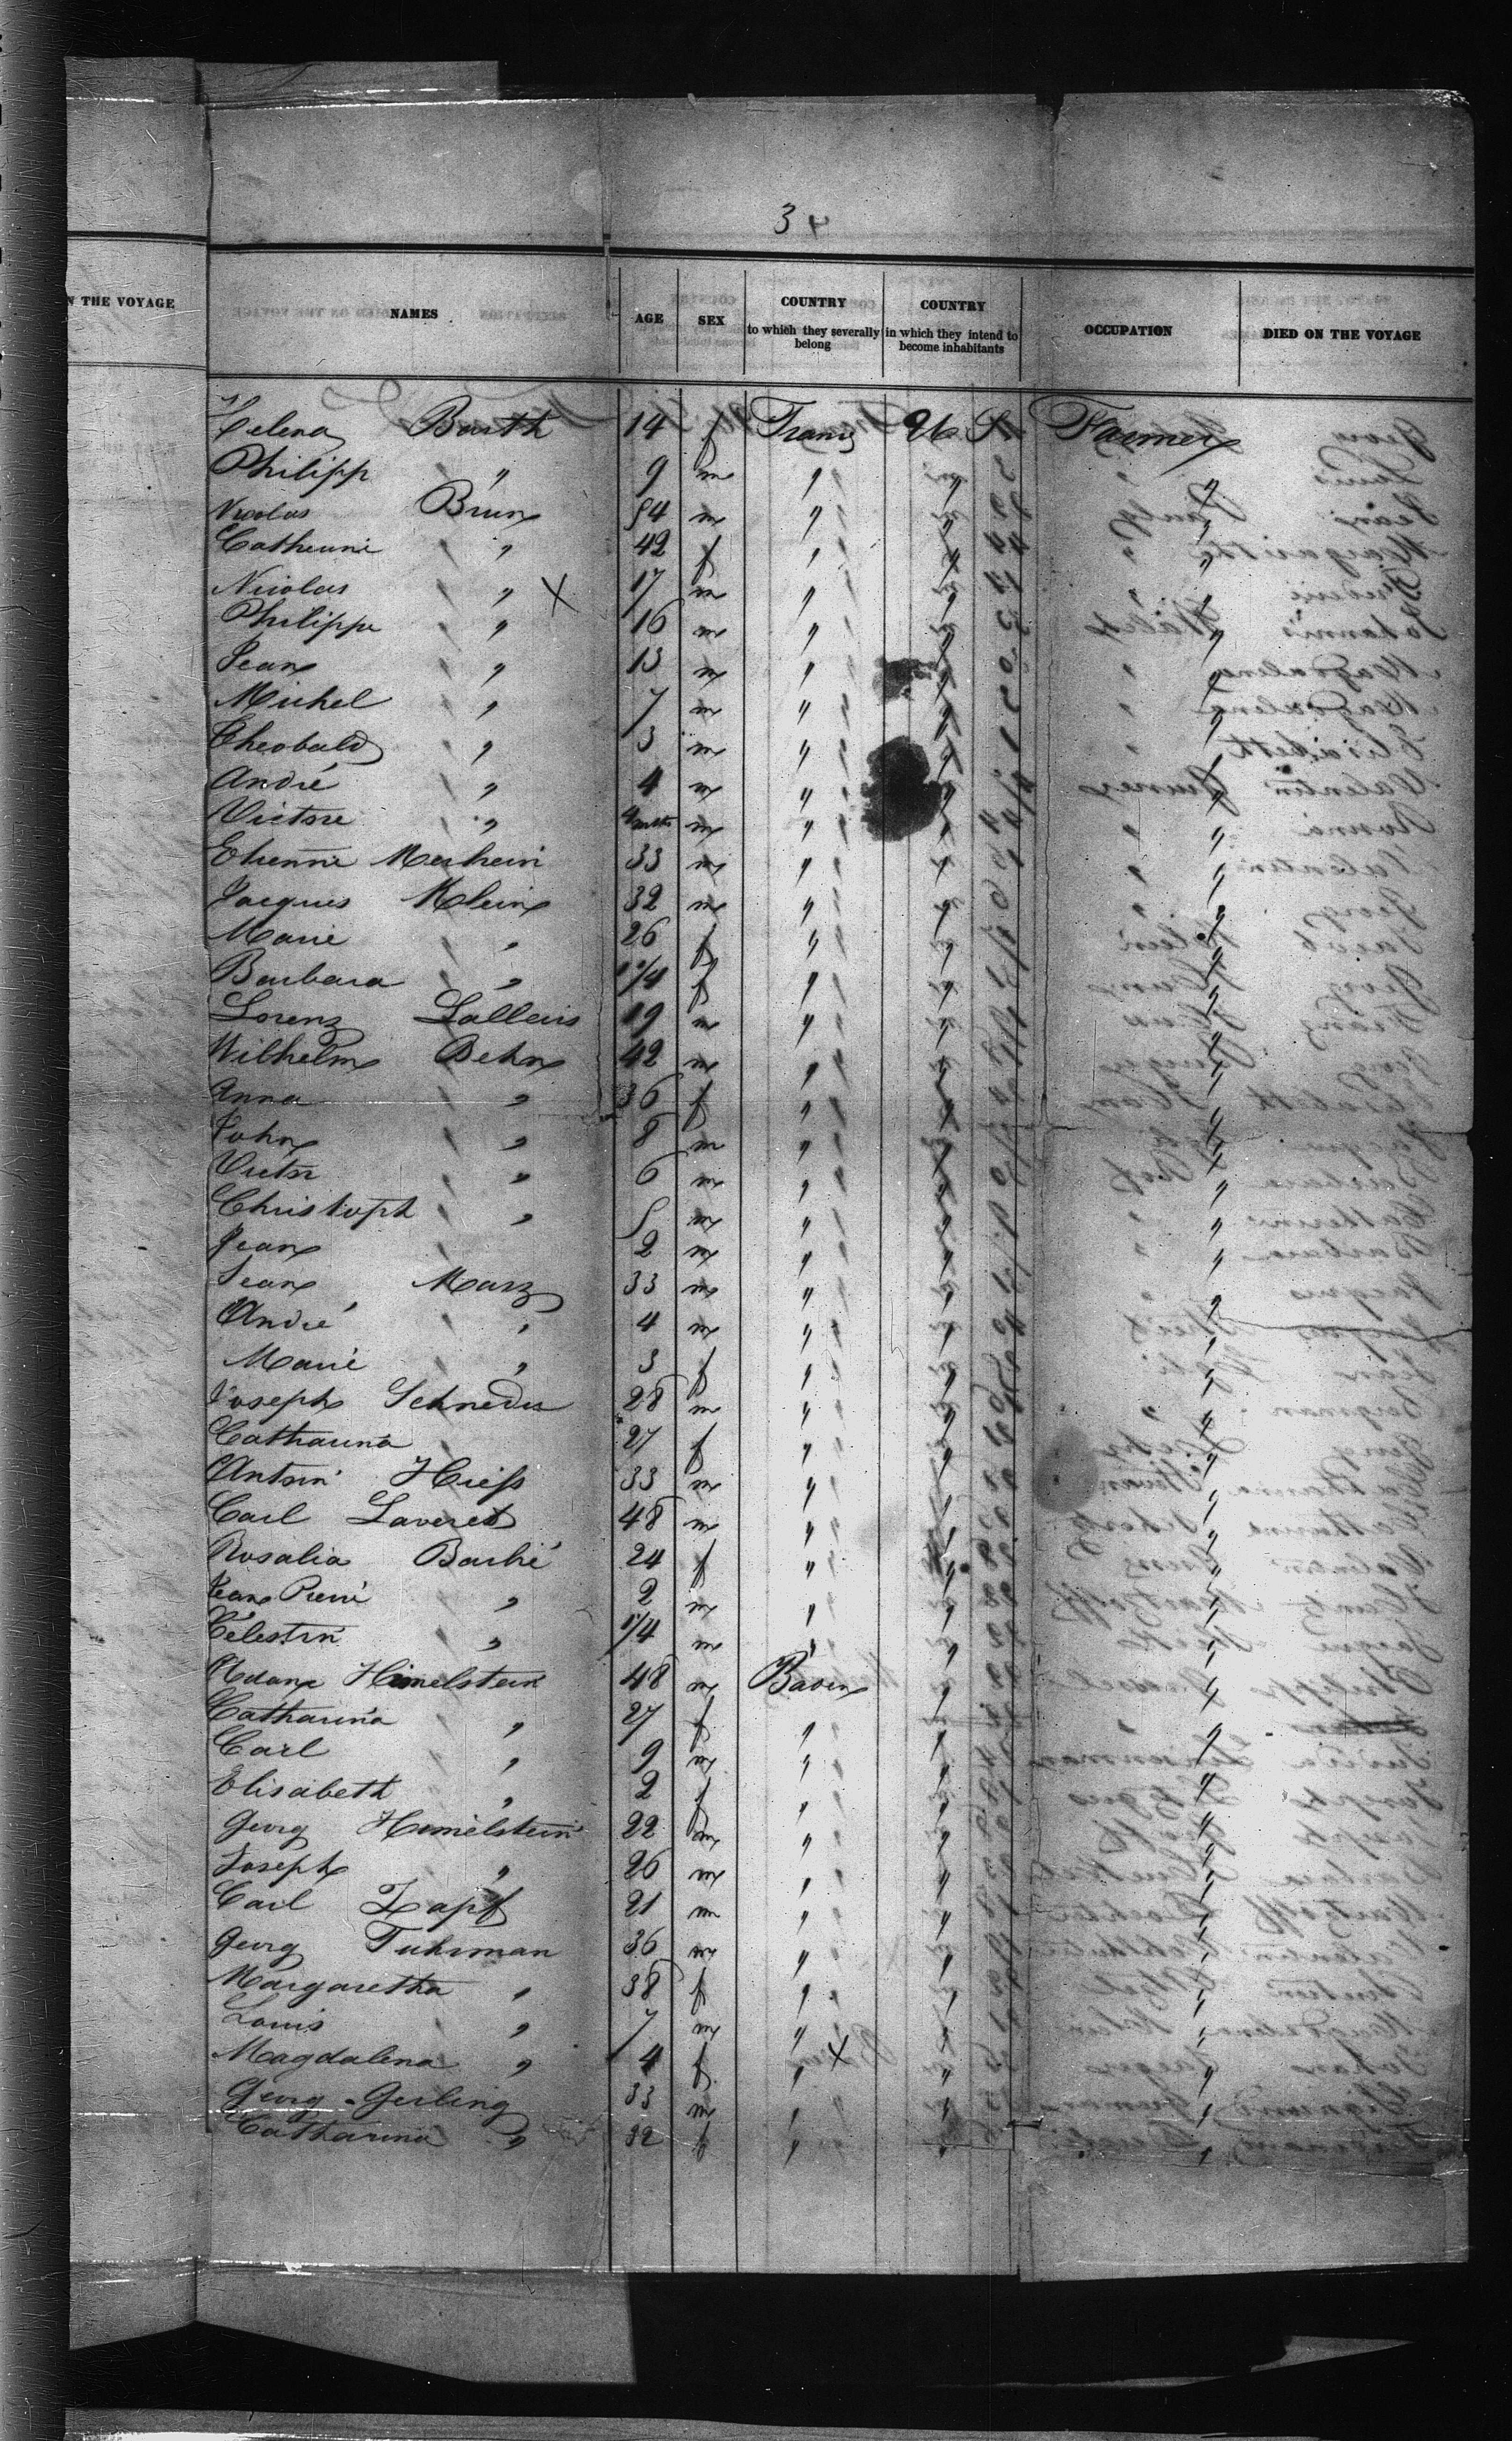 34
N THE VOYAGE
NAMES AGE SEX COUNTRY to which they severally belong COUNTRY in which they intend to become inhabitants OCCUPATION DIED ON THE VOYAGE
Helena Barth 14 f France U S Farmer
Philipp " 9 m " " "
Nicolas Brun 54 m " " "
Catherine " 42 f " " "
Nicolas " X 17 m " " "
Philippe " 16 m " " "
Jean " 13 m " " "
Michel " 7 m " " "
Theobald " 3 m " " "
André " 4 m " " "
Victore " m " " "
Etienne 33 m " " "
Jacques Klein 32 m " " "
Marie " 26 f " " "
Barbara " f " " "
Lorenz 19 m " " "
Wilhelm Behn 42 m " " "
Anna " 36 f " " "
John " 8 m " " "
Victor " 6 m " " "
Christoph " 5 m " " "
Jean 2 m " " "
Jean Marz 33 m " " "
André " 4 m " " "
Marie " 3 f " " "
Joseph Schneder 28 m " " "
Catharina 27 f " " "
Antoin Hiess 33 m " " "
Carl 48 m " " "
Rosalia Barbé 24 f " " "
Jean Pierre " 2 m " " "
Célestin " 1/4 m " " "
Adam Himelstein 48 m Baden " "
Catharina " 27 f " " "
Carl " 9 m " " "
Elisabeth " 2 f " " "
Georg Himelstein 22 m " " "
Joseph " 26 m " " "
Carl Zapf 21 m " " "
Georg Fuhrman 36 m " " "
Margaretha " 38 f " " "
Louis " 7 m " " "
Magdalena " 4 f " X " "
Georg Gerling 33 m " " "
Catharina " 32 f " " "